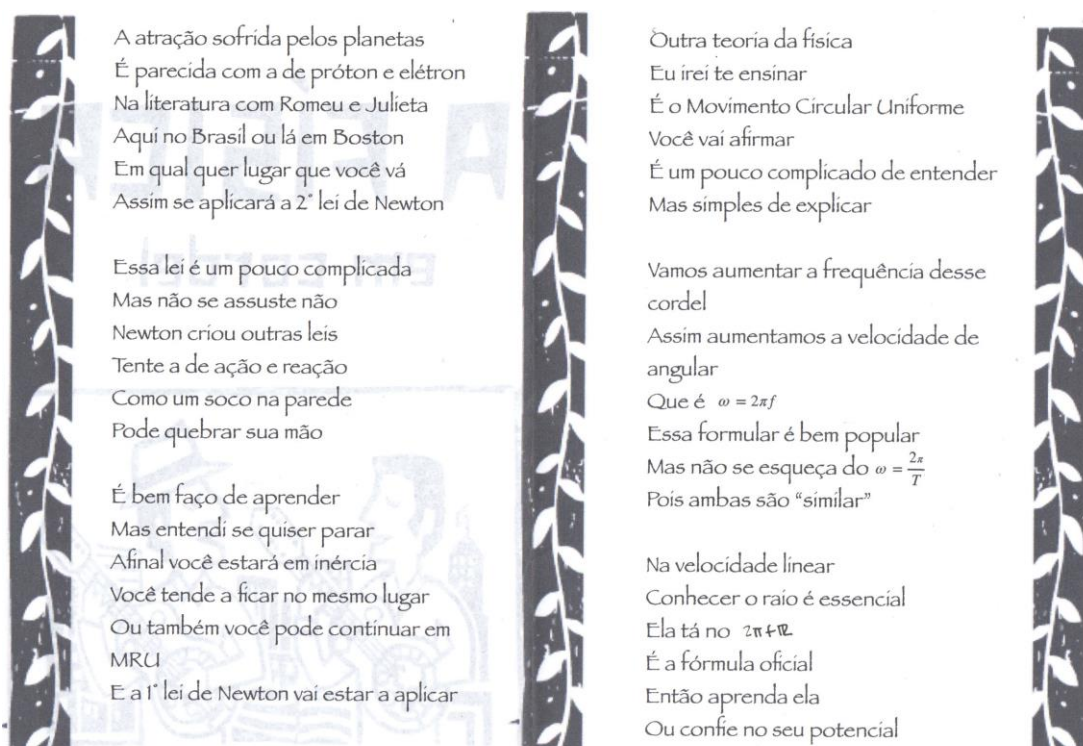 A atração sofrida pelos planetas
É parecida com a de próton e elétron
Na literatura com Romeu e Julieta
Aqui no Brasil ou lá em Boston
Em qual quer lugar que você vá
Assim se aplicará a 2ª lei de Newton
Essa lei é um pouco complicada
Mas não se assuste não
Newton criou outras leis
Tente a de ação e reação
Como um soco na parede
Pode quebrar sua mão
É bem faço de aprender
Mas entendi se quiser parar
Afinal você estará em inércia
Você tende a ficar no mesmo lugar
Ou também você pode continuar em
MRU
E a 1ª lei de Newton vai estar a aplicar
Outra teoria da física
Eu irei te ensinar
É o Movimento Circular Uniforme
Você vai afirmar
É um pouco complicado de entender
Mas simples de explicar
Vamos aumentar a frequência desse
cordel
Assim aumentamos a velocidade de
angular
Que é ω = 2πf
Essa formular é bem popular
Mas não se esqueça do ω = 2π/T
Pois ambas são “similar”
Na velocidade linear
Conhecer o raio é essencial
Ela tá no 2π
É a fórmula oficial
Então aprenda ela
Ou confie no seu potencial